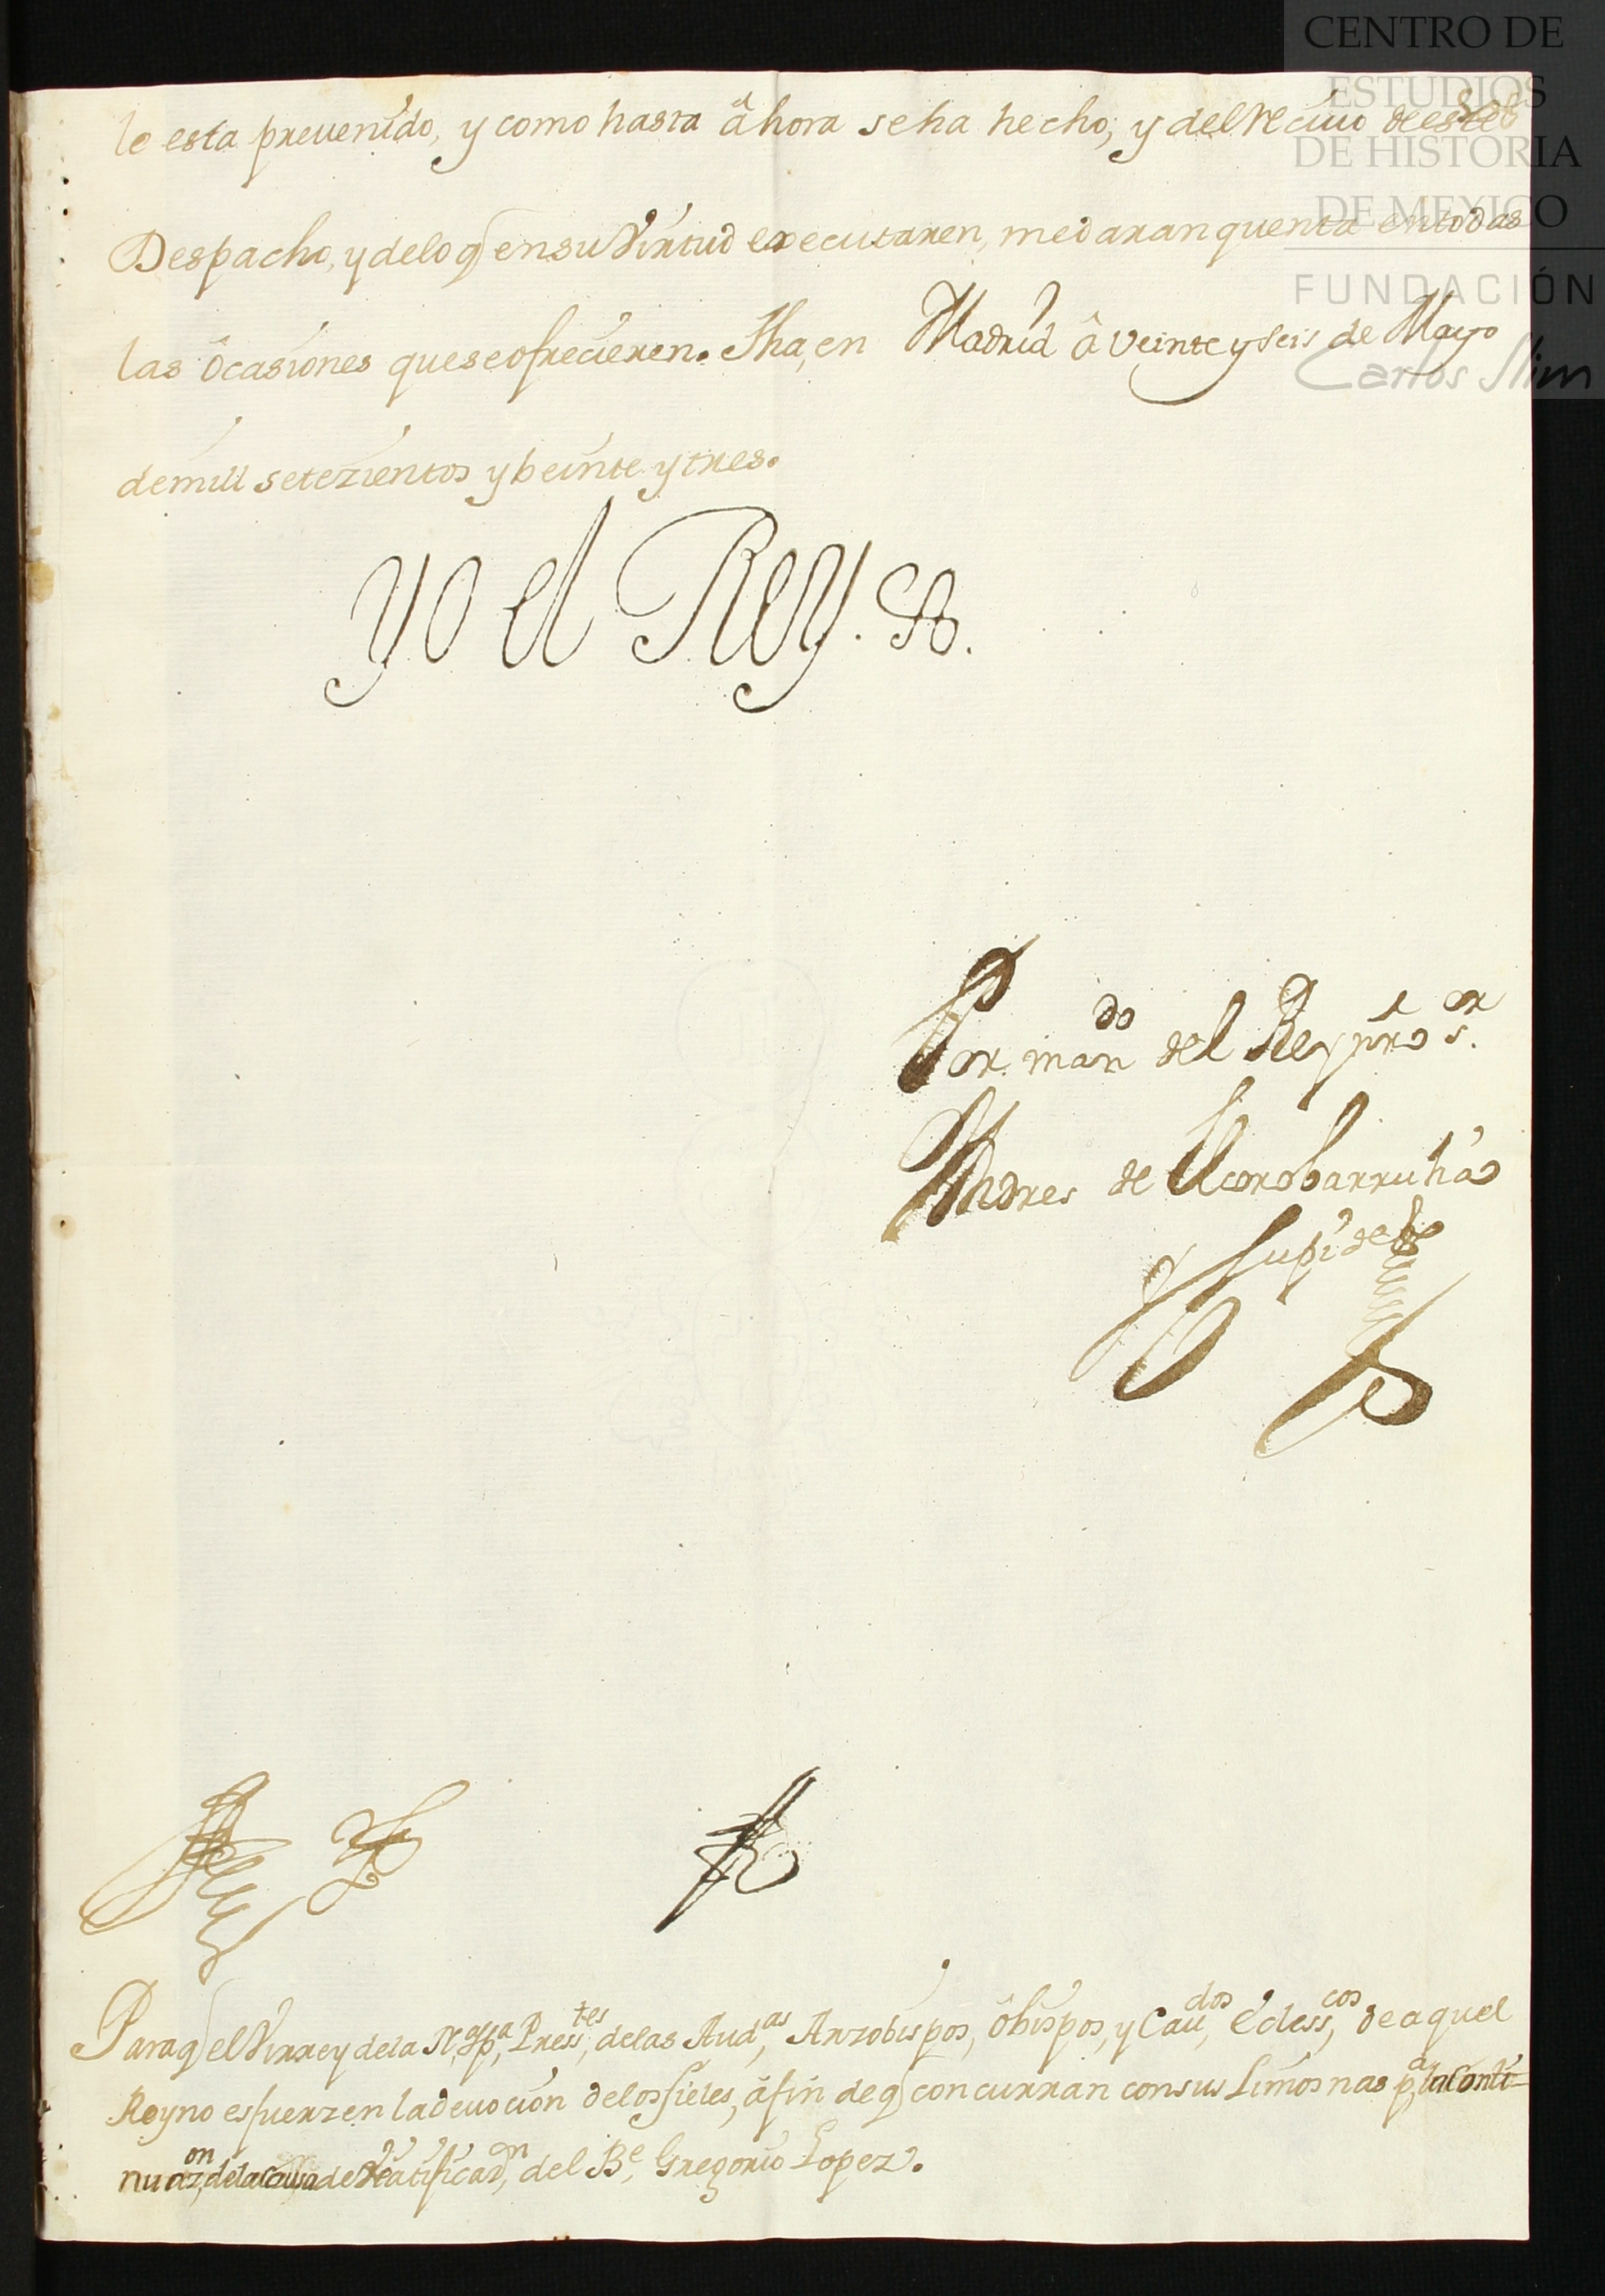 CENTRO DE
ESTUDIOS
DE HISTORIA
DE MEXICO
FUNDACIÓN
Carlos Slim
le esta preuenido, y como hasta âhora se ha hecho, y del reciuo de este
Despacho, y de lo q en su Virtud executaren, me daran quenta en todas
las ôcasiones que se ofrecieren. Fha, en Madrid â veinte y seis de Mayo
de mill setezientos y beinte y tres.
Yo el Rey.
Por man.do del Rey nro s.or
Andres de Elcorobarrutia
y Supide
Para q el Virrey de la N. Spa, Press.tes, de las Aud.as, Arzobispos, ôbispos, y Cau.dos, Ecless.cos, de aquel
Reyno esfuerzen la deuocion de los fieles, âfin de q concurran con sus Limosnas p.a la Conti-
nuaz.on, de la causa de Veatificaz.on, del B.e, Gregorio Lopez.